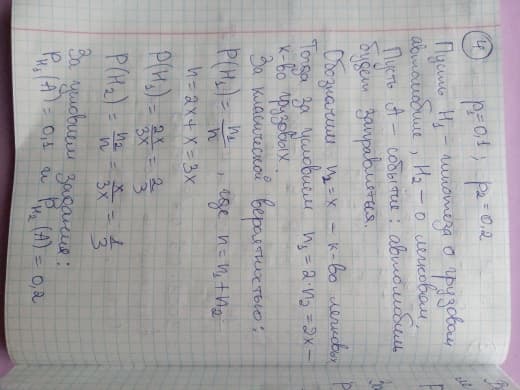 ④ p₁=0,1 ; p₂=0,2
Пусть H₁ – гипотеза о грузовом
автомобиле, H₂ – о легковом.
Пусть A – событие: автомобиль
будет заправляться.
Обозначим n₂=x – к-во легковых
Тогда за условием n₁=2·n₂=2x –
к-во грузовых.
За класической вероятностью:
P(H₁) = n₁/n, где n=n₁+n₂
n=2x+x=3x
P(H₁) = 2x/3x = 2/3
P(H₂) = n₂/n = x/3x = 1/3
За условием задания:
P_H₁(A)=0,1 и P_H₂(A)=0,2